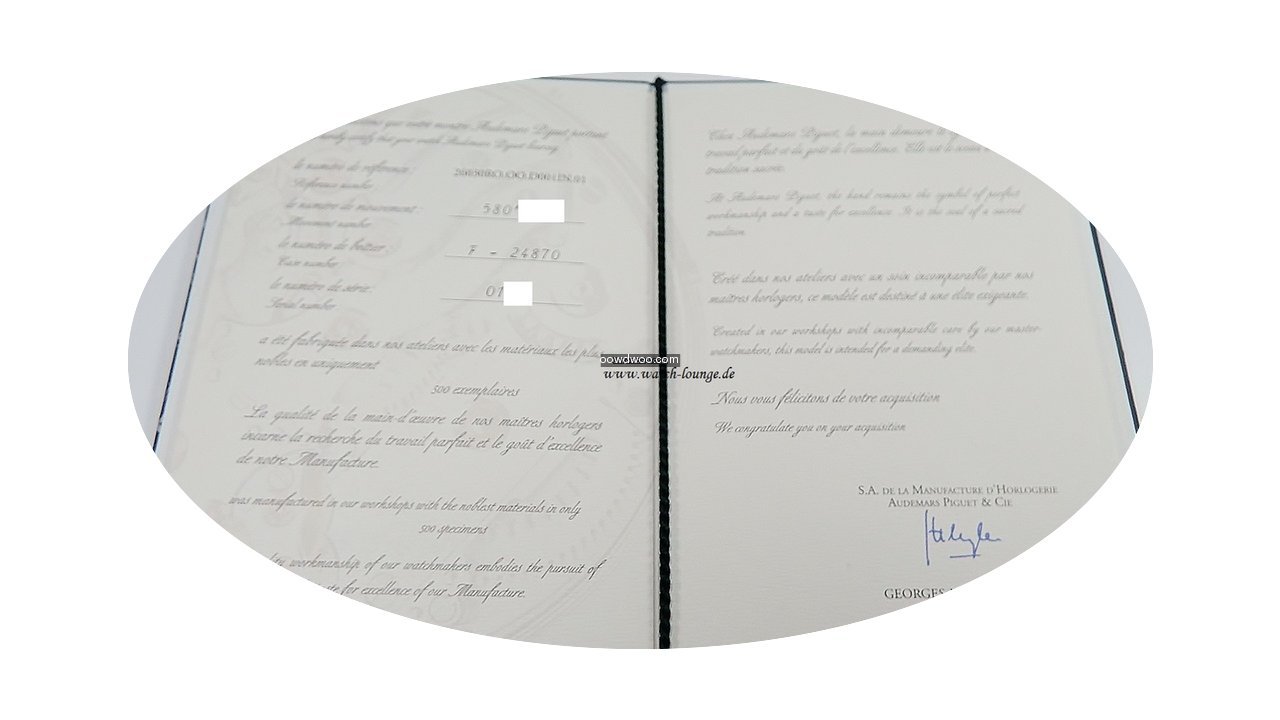 votre montre Audemars Piguet portant
certify that your watch Audemars Piguet bearing
le numéro de référence:
Reference number
le numéro de mouvement:
Movement number
580
le numéro de boîtier:
Case number
F - 24870
le numéro de série:
Serial number
01
a été fabriquée dans nos ateliers avec les matériaux les plus
nobles en uniquement
500 exemplaires
La qualité de la main-d'œuvre de nos maîtres horlogers
incarne la recherche du travail parfait et le goût d'excellence
de notre Manufacture.
was manufactured in our workshops with the noblest materials in only
500 specimens
workmanship of our watchmakers embodies the pursuit of
for excellence of our Manufacture.
Chez Audemars Piguet, la main demeure le
travail parfait et du goût de l'excellence. Elle est le
tradition sacrée.
At Audemars Piguet, the hand remains the symbol of perfect
workmanship and a taste for excellence. It is the seal of a sacred
tradition.
Créé dans nos ateliers avec un soin incomparable par nos
maîtres horlogers, ce modèle est destiné à une élite exigeante.
Created in our workshops with incomparable care by our master-
watchmakers, this model is intended for a demanding elite.
Nous vous félicitons de votre acquisition
We congratulate you on your acquisition
S.A. de la Manufacture d'Horlogerie
Audemars Piguet & Cie
GEORGES
oowdwoo.com
www.watch-lounge.de